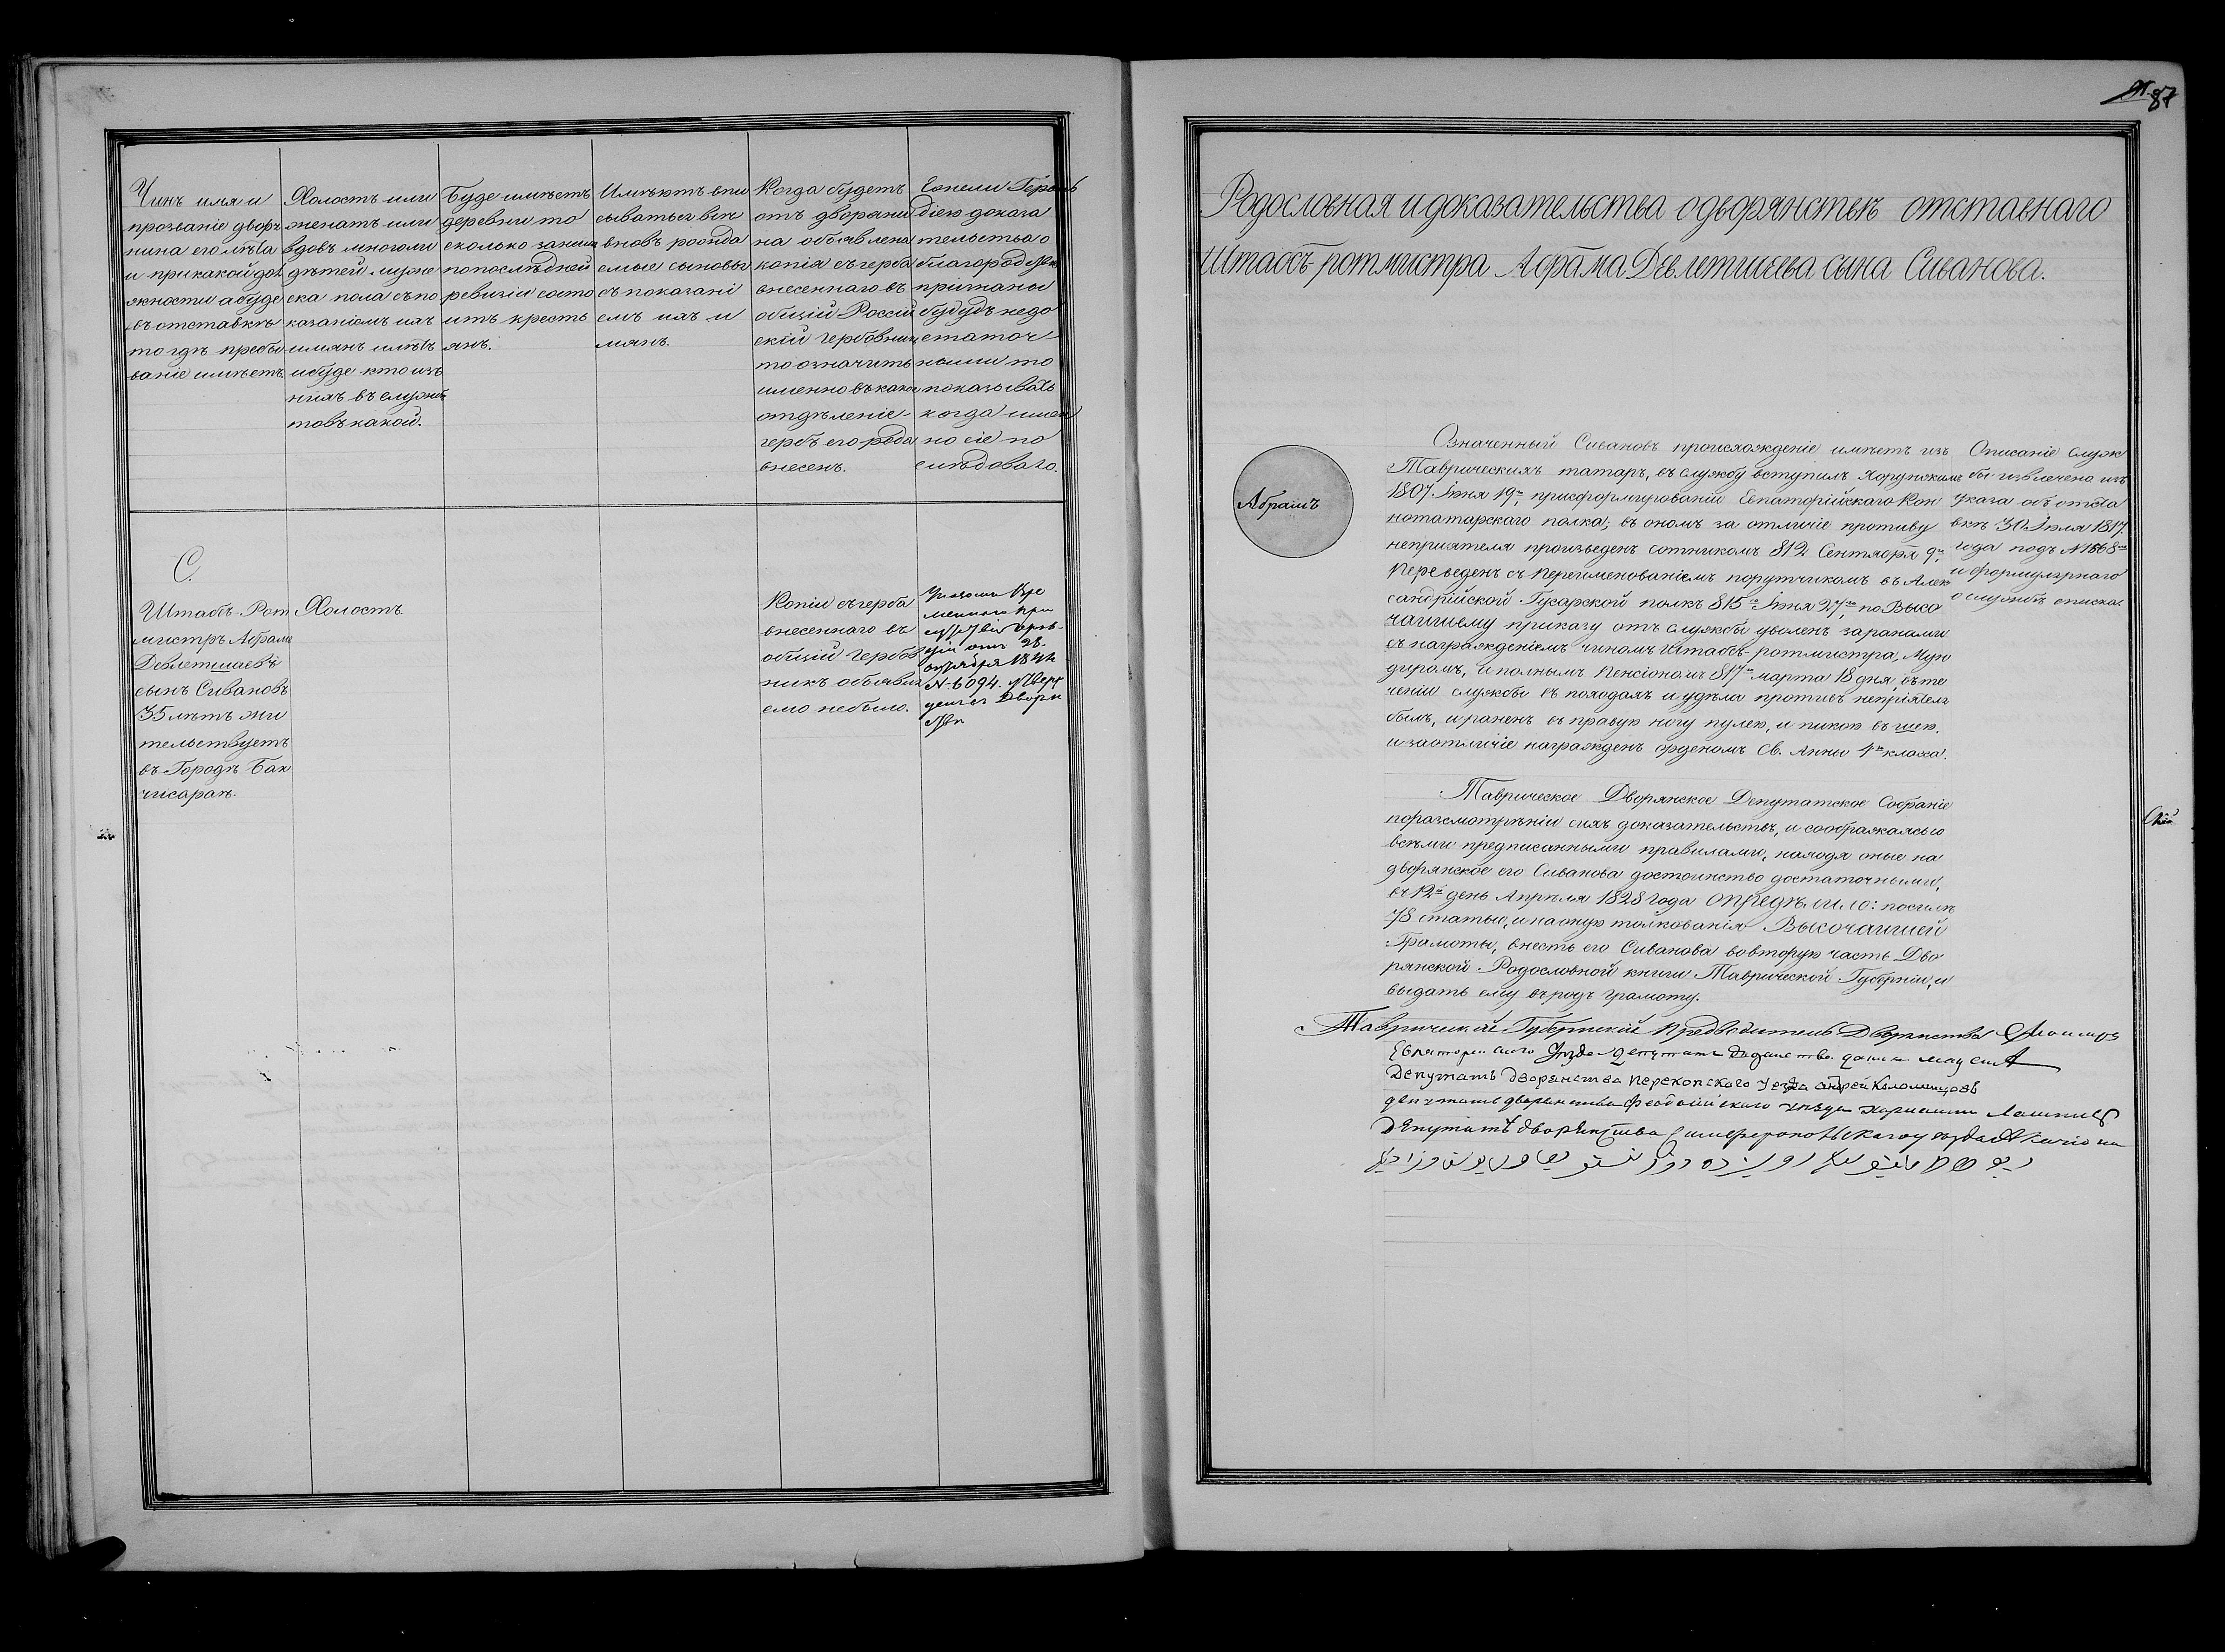 Чинъ имя и
прозваніе дворя
нина его лѣта
и при какой дол
жности а буде
въ отставкѣ
то гдѣ пребы
ваніе имѣетъ.
Холостъ или
женатъ или
вдовъ много ли
дѣтей муже
ска пола съ по
казаніемъ ихъ
имянъ и лѣтъ
и буде кто изъ
нихъ въ службѣ
то въ какой.
Буде имѣетъ
деревни то
сколько за ним
по послѣдней
ревизіи состо
итъ кресть
янъ.
Имѣютъ впи
сыватьси вни
вновь рожда
емые сыновья
съ показані
емъ ихъ и
мянъ.
Когда будетъ
отъ дворяни
на объявлена
копія съ герба
внесеннаго въ
общій Россій
скій Гербовник
то означить
именно въ како
отдѣленіе
гербъ его рода
внесенъ.
Если Героль
діею доказа
тельства о
благородств
признаны
будудъ недо
статоч
ными то
показывать
когда имен
но сіе по
слѣдовало.
С.
Штабъ-Рот
мистръ Абрамъ
Девлетшаевъ
сынъ Сивановъ
35 лѣтъ жи
тельствуетъ
въ Городѣ Бах
чисараѣ.
Холостъ.
Копіи съ герба
внесеннаго въ
общій Герbов
никъ объявля
емо небыло.
Указомъ Вре
меннаго При
сутствія Герол
діи отъ 28
октября 1844
№ 6094. утверж
денъ въ Дворян
ствѣ
87
Родословная и доказательства о дворянствѣ отставнаго
Штабсъ ротмистра Абрама Девлетшаева сына Сиванова.
Абрамъ
Означенный Сивановъ происхожденіе имѣетъ изъ
Таврическихъ татаръ, въ службу вступилъ Хорунжимъ
1807 Іюня 19го, при сформированіи Евпаторійскаго Кон
нотатарскаго полка; въ ономъ за отличіе противу
непріятеля произведенъ сотникомъ 812 Сентября 9го,
переведенъ съ переименованіемъ порутчикомъ въ Алек
сандрійской Гусарской полкъ 815го Іюня 27го, по Высо
чайшему приказу отъ службы уволенъ за ранами
съ награжденіемъ чиномъ Штабъ-ротмистра, Мун
диромъ, и полнымъ пенсіономъ 817го марта 18 дня, въ те
ченіи службы въ походахъ и у дѣла противъ непріятеля
былъ, и раненъ въ правую ногу пулею, и пикою въ шею.
и за отличіе награжденъ орденомъ Св. Анны 4го класса.
Описаніе служ
бы извлечено изъ
указа объ отста
вкѣ 30 Іюля 1817.
года подъ № 1668мъ
и формулярнаго
о службѣ списка.
Таврическое Дворянское Депутатское Собраніе
по разсмотрѣніи сихъ доказательствъ, и соображаясь со
всѣми предписанными правилами, находя оные на
дворянское его Сиванова достоинство достаточными,
въ 12й день Апрѣля 1828 года опредѣлило: по силѣ
78 статьи, и на оную толкованія Высочайшей
Грамоты, внесть его Сиванова во вторую часть Дво
рянской Родословной книги Таврической Губерніи, и
выдать ему въ родъ грамоту.
Таврическій Губернскій Предводитель Дворянства
Евпаторискаго Уезда Депутатъ
Депутатъ дворянства Перекопскаго уезда андрей Коломийцовъ
депутатъ дворянства Феодосійскаго уѣзда
Депутатъ дворянства Симферопольскаго уѣзда